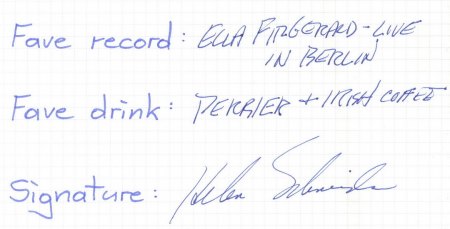 Fave record: ELLA FITZGERALD - LIVE
IN BERLIN
Fave drink: PERRIER + IRISH COFFEE
Signature: Helen